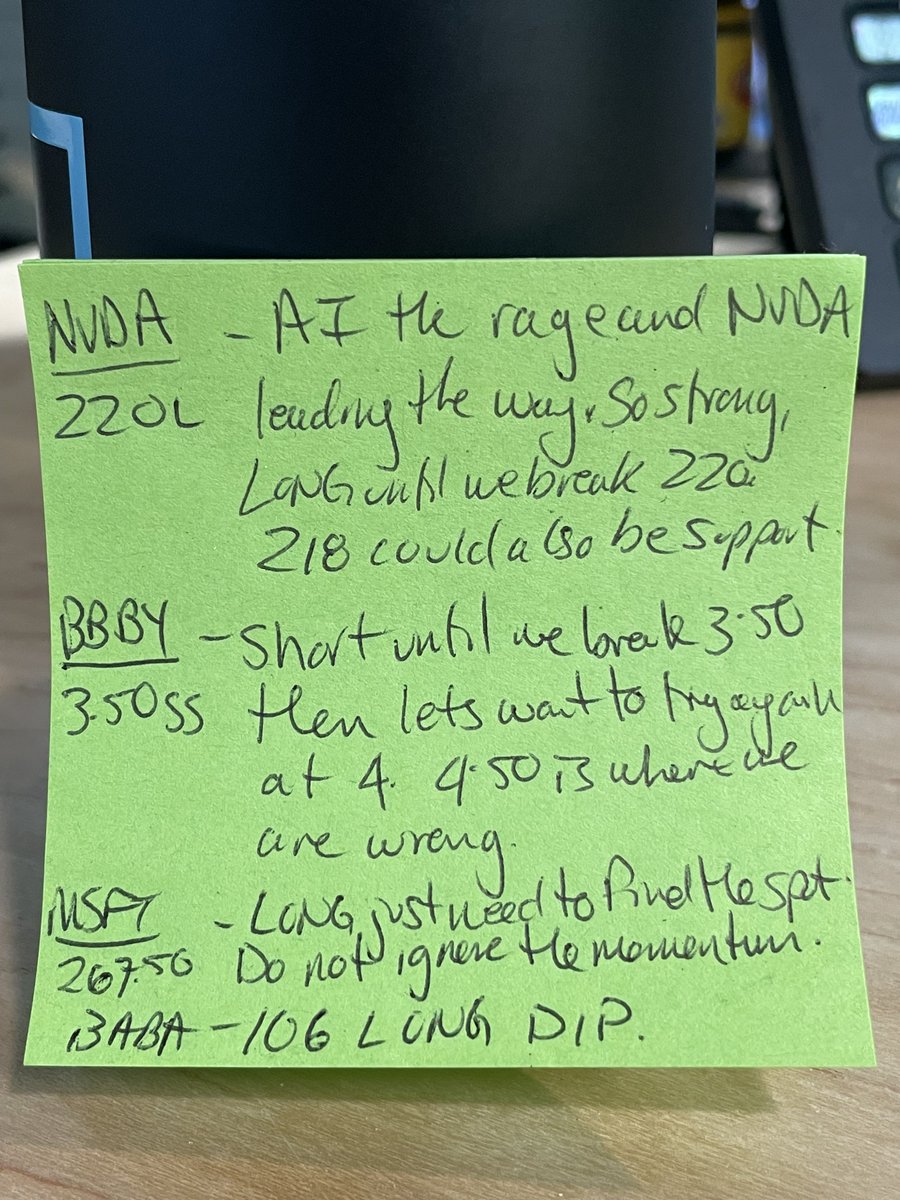 NVDA - AI the rage and NVDA
220L leading the way. So strong,
LONG until we break 220.
218 could also be support.
BBBY - Short until we break 3.50
3.50SS then lets want to try again
at 4. 4.50 is where we
are wrong.
MSFT - LONG, just need to find the spot.
267.50 Do not ignore the momentum.
BABA - 106 LONG DIP.